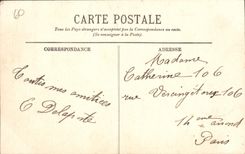 60
CARTE POSTALE
Tous les Pays étrangers n'acceptent pas la Correspondance au recto.
(Se renseigner à la Poste)
CORRESPONDANCE
ADRESSE
Toutes mes amitiés
C Delaporte
Madame
Catherine 106
rue Vercingétorix 106
14me arrond
Paris